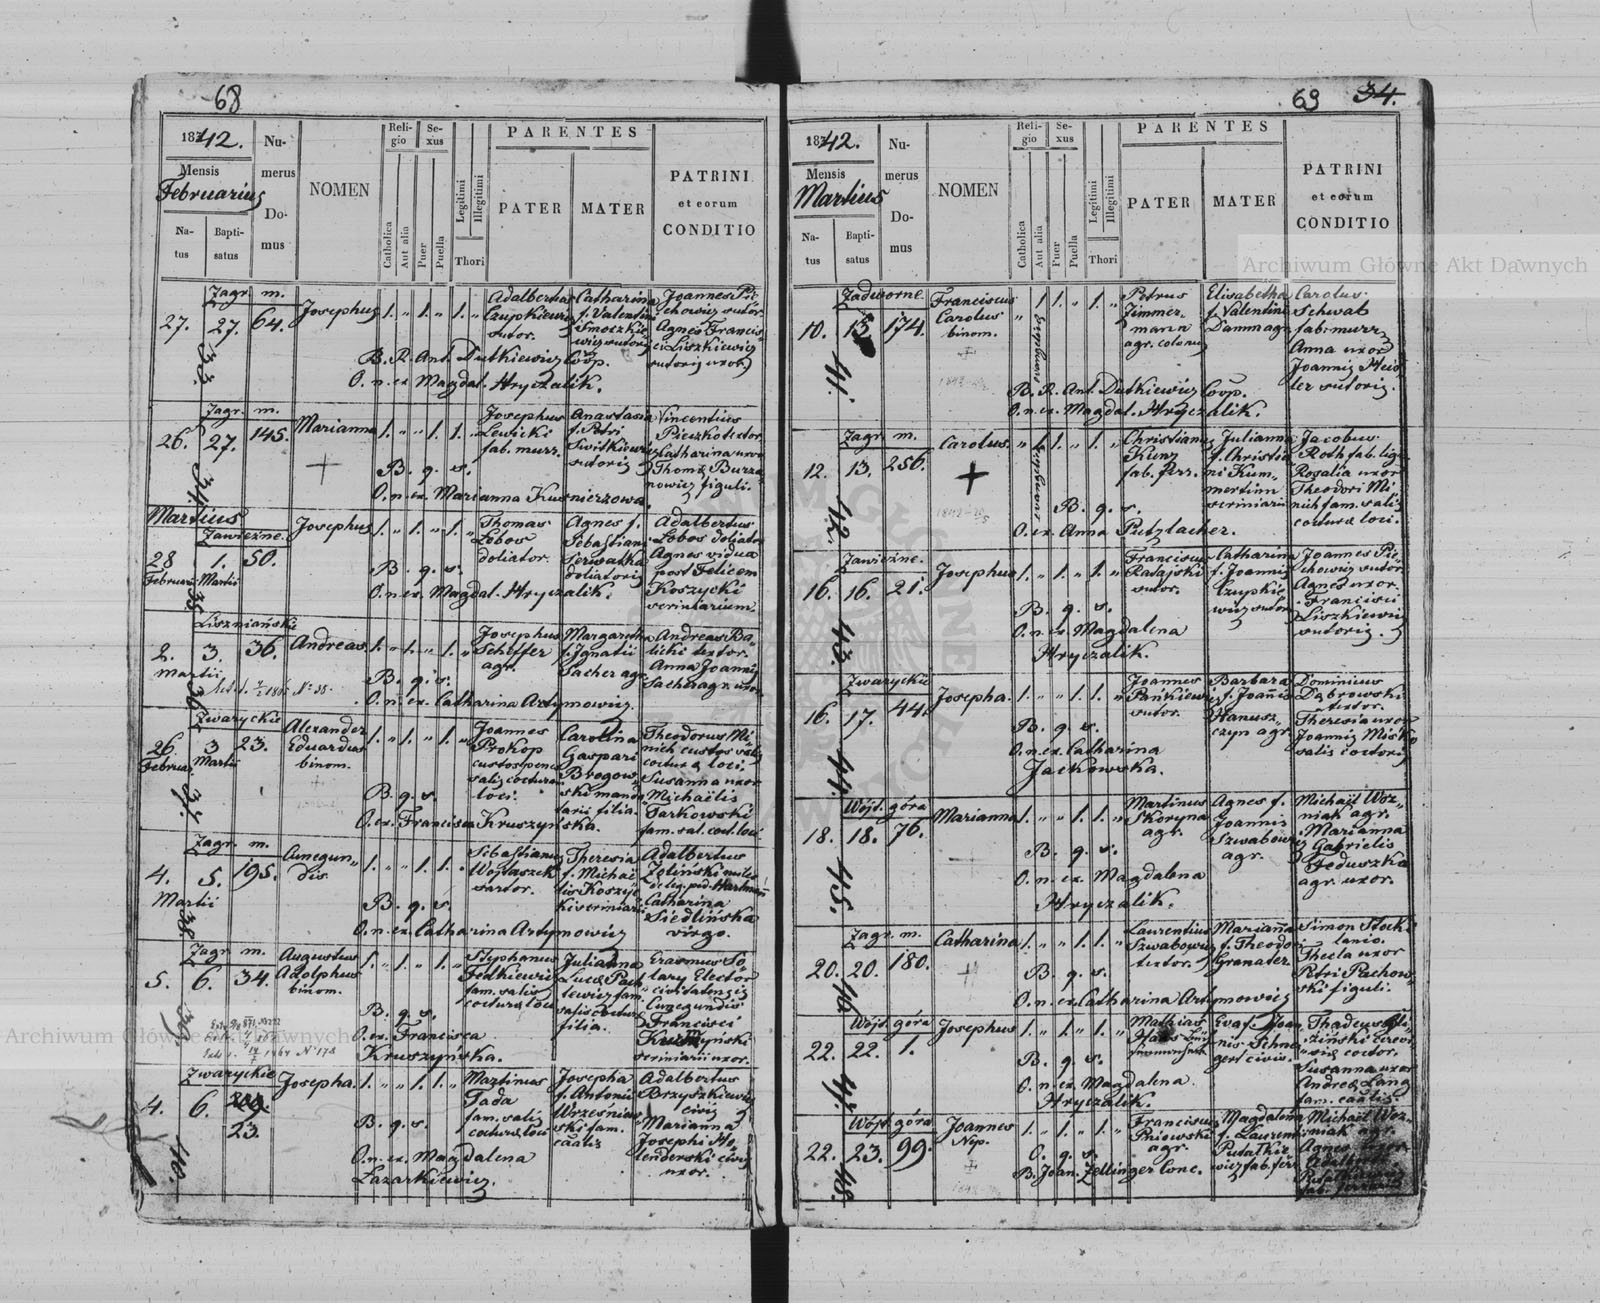 68
1842.
Mensis
Februarius
Na-
tus
Bapti-
satus
Nu-
merus
Do-
mus
NOMEN
Reli-
gio
Catholica
Aut alia
Se-
xus
Puer
Puella
Legitimi
Illegitimi
Thori
PARENTES
PATER
MATER
PATRINI
et eorum
CONDITIO
Zagr. m.
27. 27. 64.
Josephus 1. " 1. " 1. "
Adalbertus
Czupkiewicz
sutor.
Catharina
f. Valentini
Smoczkie
wicz sutoris
Joannes Pie
chowicz sutor.
Agnes Francis
ci Liszkiewicz
sutoris uxor.
B. R. Ant. Dutkiewicz Coop.
O. n. ex. Magdal. Hryczalik.
33.
Zagr. m.
26. 27. 145.
Marianna 1. " " 1. 1. "
Josephus
Lewicki
fab. murr.
Anastasia
f. Petri
Switkiewicz
sutoris
Vincentius
Pieczko textor
Catharina uxor
Thomæ Burza
nowicz figuli.
B. q. s.
O. n. ex. Marianna Kusnierzowa.
34.
Martius
Zawiezne.
28 1. 50.
Februar. Martii
Josephus 1. " 1. " 1. "
Thomas
Lobos
doliator.
Agnes f.
Sebastiani
Serwatka
doliatoris
Adalbertus
Lobos doliator
Agnes vidua
post Felicem
Koszycki
scriniarium.
B. q. s.
O. n. ex. Magdal. Hryczalik.
35.
Liszniański
2. 3. 36.
Martii
Andreas 1. " 1. " 1. "
Josephus
Scheffer
agr.
Margaretha
f. Ignatii
Sacher agr.
Andreas Ba-
liche textor.
Anna Joannis
Sacher agr. uxor
B. q. s.
O. n. ex. Catharina Artymowicz.
36.
Zwaryckie
26. 3 23.
Februar. Martii
Alexander
Eduardus
binom.
1. " 1. " 1. "
Joannes
Prokop
custos penes
salis cocturam
loci.
Carolina
Gaspari
Brogow-
ski manda
tarii filia.
Theodorus Mi-
nich custos salis
cocturæ loci.
Susanna uxor
Michaëlis
Tarkowski
fam. sal. coct. loci
B. q. s.
O. ex. Francisca Kruszyńska.
37.
Zagr. m.
4. 5. 195.
Martii
Cunegun-
dis.
1. " " 1. 1. "
Sebastianus
Wojtaszek
sartor.
Theresia
f. Michaë
lis Koszyc
ki scriniarii
Adalbertus
Zoliński miles
de leg. ped. Hartmann
Catharina
Siedlińska
virgo.
B. q. s.
O. n. ex. Catharina Artymowicz
38.
Zagr. m.
5. 6. 34.
Augustus
Adolphus
binom.
1. " 1. " 1. "
Stephanus
Fedkiewicz
fam. salis
cocturæ loci
Julianna
Lucæ Pach
lewicz fam.
salis cocturæ
filia.
Erasmus So
lary Elector
civitatensis
Cunegundis
Francisci
Kruszyński
scriniarii uxor.
B. q. s.
O. ex. Francisca
Kruszyńska.
39.
Zwaryckie
4. 6. 23.
Josepha. 1. " " 1. 1. "
Martinus
Tada
fam. salis
cocturæ loci
Josepha
f. Antonii
Wrzesniow
ski fam.
caalis
Adalbertus
Brzyszkiewicz
civis
Marianna
Josephi Ho-
lenderski civis
uxor.
B. q. s.
O. n. ex. Magdalena
Lazarkiewicz.
40.
69 34.
1842.
Mensis
Martius
Na-
tus
Bapti-
satus
Nu-
merus
Do-
mus
NOMEN
Reli-
gio
Catholica
Aut alia
Se-
xus
Puer
Puella
Legitimi
Illegitimi
Thori
PARENTES
PATER
MATER
PATRINI
et eorum
CONDITIO
Zadworne.
10. 13 174.
Franciscus
Carolus
binom.
" 1. 1. " 1. "
Petrus
Zimmer
mann
agr. colonus
Elisabetha
f. Valentini
Dammagr.
Carolus
Schwab
fab. murr
Anna uxor
Joannis Heid
ler sutoris.
B. R. Ant. Dutkiewicz Coop.
O. n. ex. Magdal. Hryczalik.
41.
Zagr. m.
12. 13. 256.
Carolus. " 1. 1. " 1. "
Christianus
Kunz
fab. ferr.
Julianna
f. Christia
ni Kum-
mertinn
scriniarii
Jacobus
Roth fab. lign.
Rosalia uxor
Theodori Mi
nich fam. salis
cocturæ loci.
B. q. s.
O. ex. Anna Putzlacher.
42.
Zawiezne.
16. 16. 21.
Josephus 1. " 1. " 1. "
Franciscus
Ratajski
sutor.
Catharina
f. Joannis
Czupkie
wicz sutoris
Joannes Pie
chowicz sutor.
Agnes uxor
Francisci
Liszkiewicz
sutoris.
B. q. s.
O. n. ex. Magdalena
Hryczalik.
43.
Zwaryckie
16. 17. 44.
Josepha. 1. " " 1. 1. "
Joannes
Pańkiewicz
sutor.
Barbara
f. Joannis
Hanusz-
czyn agr.
Dominicus
Dąbrowski
textor.
Theresia uxor
Joannis Misko
salis coctoris
B. q. s.
O. n. ex. Catharina
Jackowska.
44.
Wójt. góra
18. 18. 76.
Marianna 1. " " 1. 1. "
Martinus
Skoryna
agr.
Agnes f.
Joannis
Szwabowicz
agr.
Michaël Woz-
niak agr.
Marianna
Gabrielis
Feduszka
agr. uxor.
B. q. s.
O. n. ex. Magdalena
Hryczalik.
45.
Zagr. m.
20. 20. 180.
Catharina 1. " " 1. 1. "
Laurentius
Szwabowicz
textor.
Marianna
f. Theodori
Granater.
Simon Stock
lanio.
Thecla uxor
Petri Pachow-
ski figuli.
B. q. s.
O. n. ex. Catharina Artymowicz
46.
Wójt. góra
22. 22. 1.
Josephus 1. " 1. " 1. "
Mathias
Eva f. Joan
nis Schne
gert civis.
Thadeus
Susanna uxor
Andreæ Lang
fam. caalis.
B. q. s.
O. n. ex. Magdalena
Hryczalik.
47.
Wójt. góra
22. 23. 99.
Joannes
Nep.
1. " 1. " 1. "
Franciscus
Pniowski
agr.
Magdalena
f. Laurent.
Putatkie
wicz fab. ferr
Michaël Woz-
niak agr.
Agnes uxor
O. q. s.
B. Joan. Zellinger Conc.
48.
Archiwum Główne Akt Dawnych
Archiwum Główne Akt Dawnych